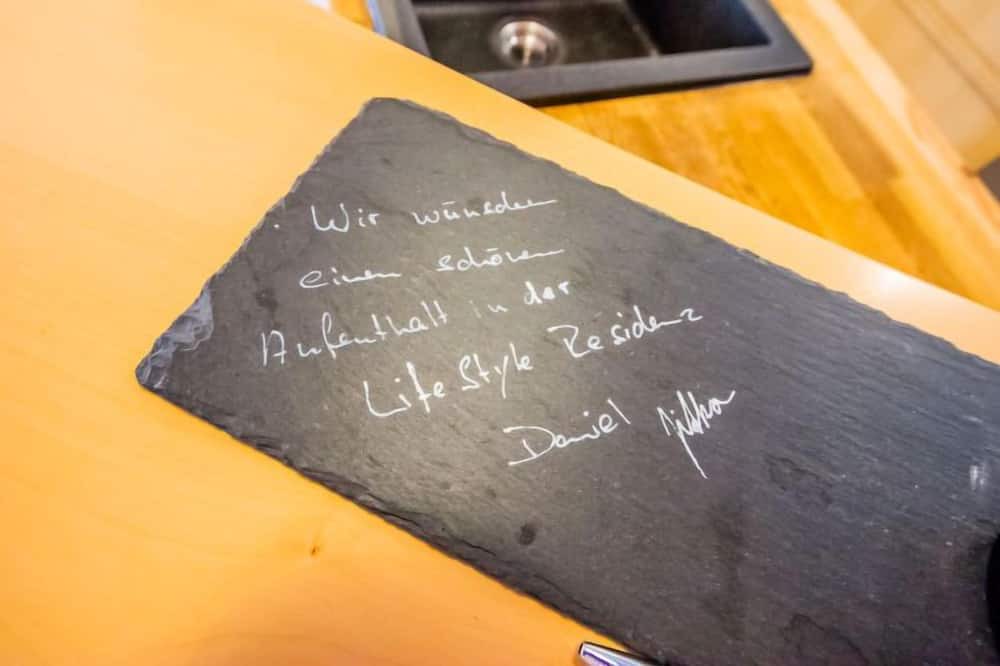 Wir wünschen
einen schönen
Aufenthalt in der
LifeStyle Residenz
Daniel